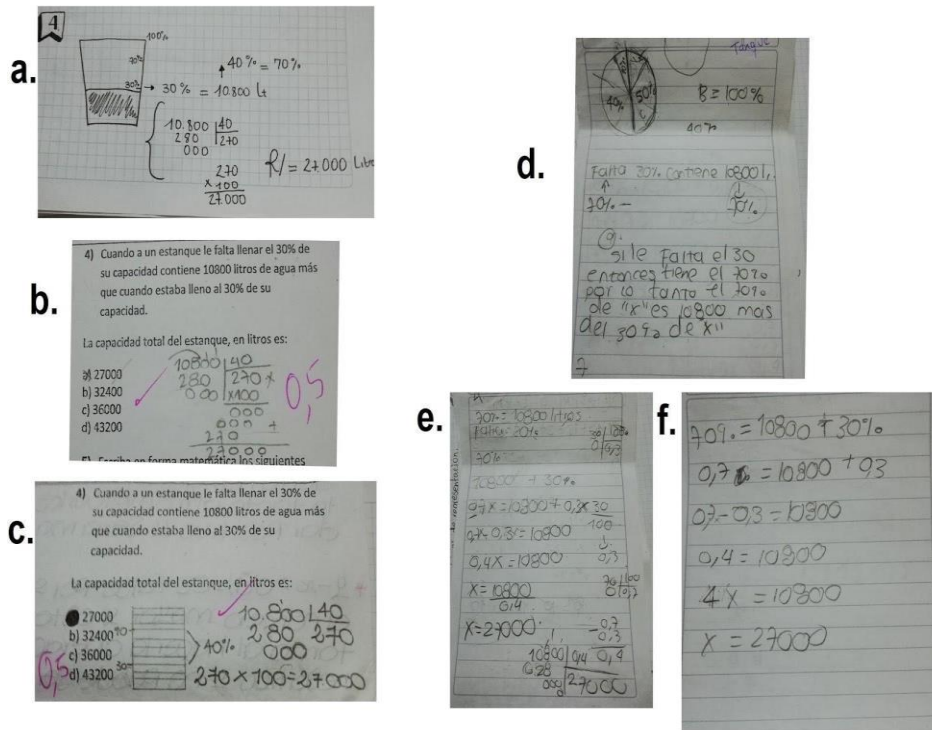 a.
4
100%
70%
30%
40% = 70%
→ 30% = 10.800 Lt
10.800 |40
280 |270
000
270
x 100
27.000
R/= 27000 Litr
b.
4) Cuando a un estanque le falta llenar el 30% de
su capacidad contiene 10800 litros de agua más
que cuando estaba lleno al 30% de su
capacidad.
La capacidad total del estanque, en litros es:
a) 27000
b) 32400
c) 36000
d) 43200
10800 |40
280 |270 x
000 |x100
000
000 +
270
27000
0,5
c.
4) Cuando a un estanque le falta llenar el 30% de
su capacidad contiene 10800 litros de agua más
que cuando estaba lleno al 30% de su
capacidad.
La capacidad total del estanque, en litros es:
27000
b) 32400
c) 36000
d) 43200
30
40%
10.800 |40
280 270
000
270 x 100=27000
0,5
d.
Tanque
40%
50%
B= 100%
40%
Falta 30% contiene 10800 l.
70% -
70%
si le Falta el 30
entonces tiene el 70%
por lo tanto el 70%
de "x" es 10800 mas
del 30% de "x"
7
e.
70% = 10800 litros
70%
10800 + 30%
0,7x = 10800 + 0,3x
30
100
0,7x - 0,3x = 10800
0,3
0,4x = 10800
x = 10800
0,4
x=27000
-0,7
0,3
0,4
10800 |0,4
0,28
000 |27000
f.
70% = 10800 + 30%
0,7 = 10800 + 03
0,7 - 0,3 = 10800
0,4 = 10800
4x = 10800
x = 27000